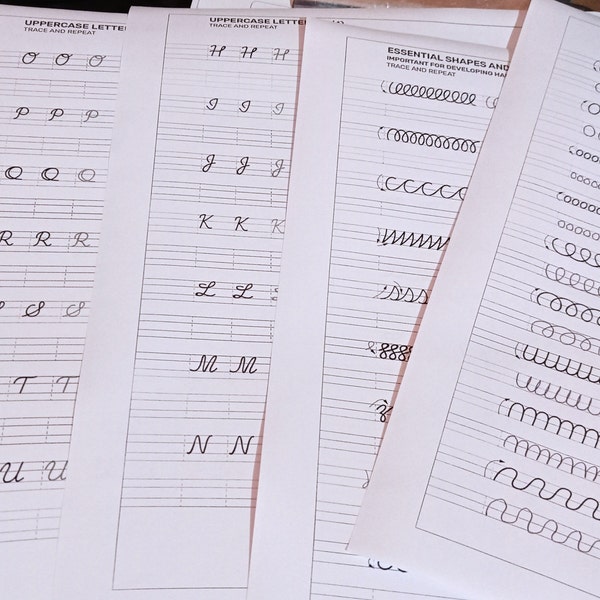 UPPERCASE LETTE
TRACE AND REPEAT
O O O
P P P
Q Q Q
R R R
S S S
T T
U U
UPPERCASE LETTER
TRACE AND REPEAT
H H H
I I I
J J J
K K K
L L L
M M
N N
ESSENTIAL SHAPES AND
IMPORTANT FOR DEVELOPING HA
TRACE AND REPEAT